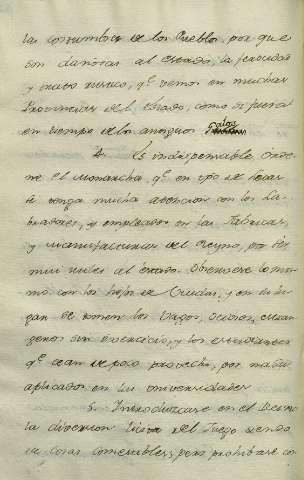 las costumbres de los Pueblos, por que
son dañosas al estado, la ferocidad
y trato rustico, qe. vemos en muchas
Provincias del Estado, como si fuera
en tiempo de los antiguos Galos
4. Es indispensable, orde
ne el Monarcha, qe. en tpo de
se tenga mucha atencion con los La
bradores, y empleados en las Fabricas,
y manufacturas del Reyno, por ser
muy utiles al estado. Observese lo mis
mo con los hijos de Viudas, y en su lu
gar se tomen los Vagos, Ociosos, estran
geros sin exercicio, y los estudiantes
qe. sean de poco provecho, por mal
aplicados en las Universidades
5. Introduzcase en el Reino
la diversion licita del Juego siendo
de cosas comestibles, pero prohibase co